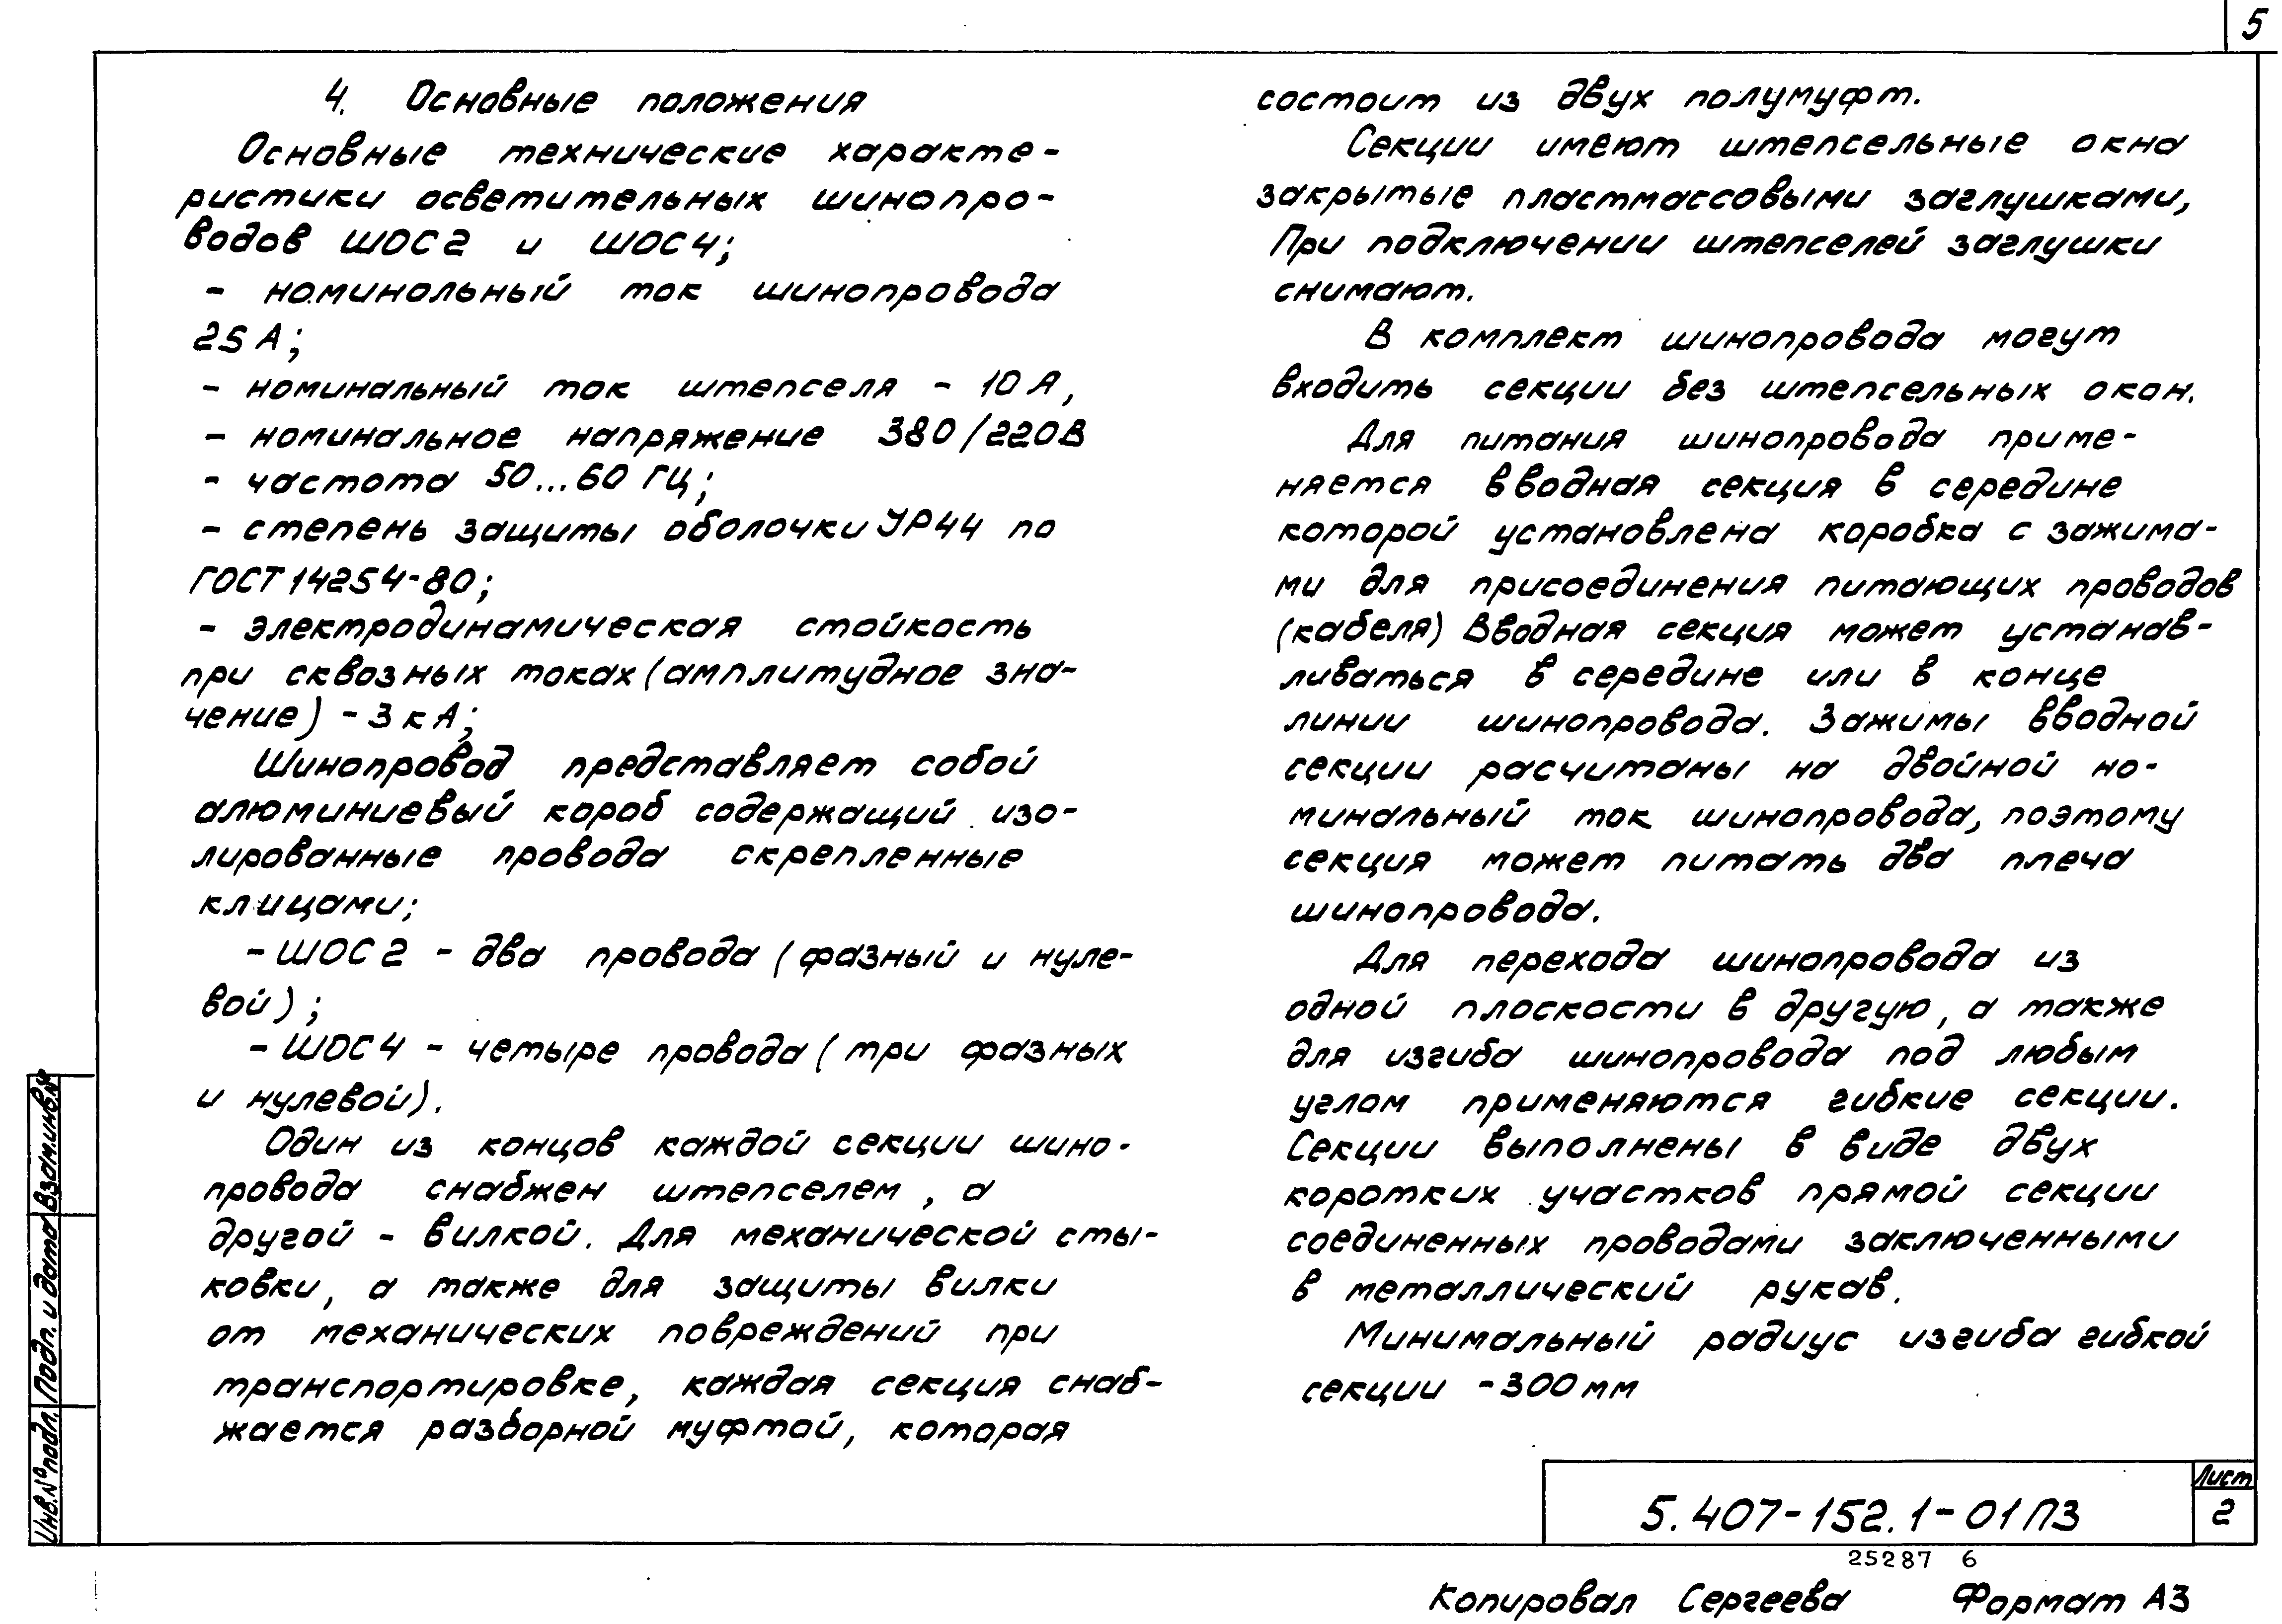 5
4. Основные положения
Основные технические характе-
ристики осветительных шинопро-
водов ШОС2 и ШОС4;
- номинольный ток шинопровода
25 А;
- номинальный ток штепселя - 10 А,
- номинальное напряжение 380/220В
- частота 50...60 ГЦ;
- степень защиты оболочки УР44 по
ГОСТ 14254-80;
- электродинамическая стойкость
при сквозных токах (амплитудное зна-
чение) - 3 кА;
Шинопровод представляет собой
алюминиевый короб содержащий изо-
лированные провода скрепленные
клицами;
- ШОС 2 - два провода (фазный и нуле-
вой);
- ШОС 4 - четыре провода (три фазных
и нулевой).
Один из концов каждой секции шино-
провода снабжен штепселем, а
другой - вилкой. Для механической сты-
ковки, а также для защиты вилки
от механических повреждений при
транспортировке, каждая секция снаб-
жается разборной муфтой, которая
состоит из двух полумуфт.
Секции имеют штепсельные окна
закрытые пластмассовыми заглушками,
При подключении штепселей заглушки
снимают.
В комплект шинопровода могут
входить секции без штепсельных окон.
Для питания шинопровода приме-
няется вводная секция в середине
которой установлена коробка с зажима-
ми для присоединения питающих проводов
(кабеля) Вводная секция может устанав-
ливаться в середине или в конце
линии шинопровода. Зажимы вводной
секции расчитаны на двойной но-
минальный ток шинопровода, поэтому
секция может питать два плеча
шинопровода.
Для перехода шинопровода из
одной плоскости в другую, а также
для изгиба шинопровода под любым
углом применяются гибкие секции.
Секции выполнены в виде двух
коротких участков прямой секции
соединенных проводами заключенными
в металлический рукав.
Минимальный радиус изгиба гибкой
секции - 300 мм
Инв.№ подл. Подп. и дата Взам.инв.№
5.407-152.1-01ПЗ
Лист
2
25287 6
Копировал Сергеева Формат А3